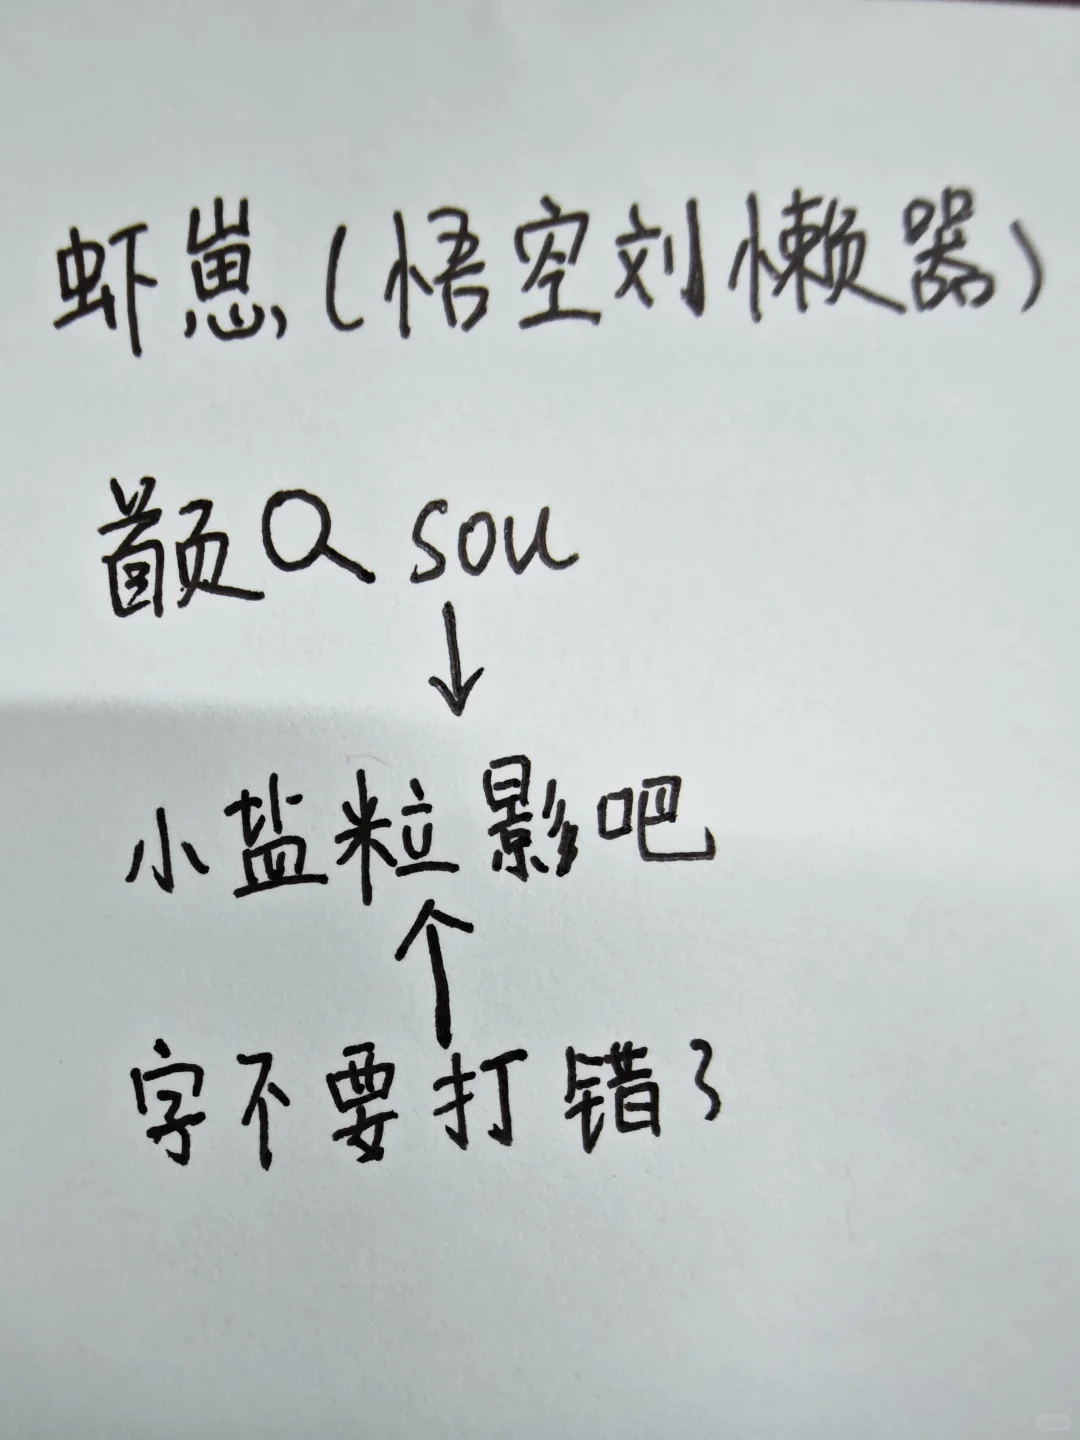 虾崽(悟空刘懒器)
颤Q sou
↓
小盐粒影吧
↑
字不要打错了